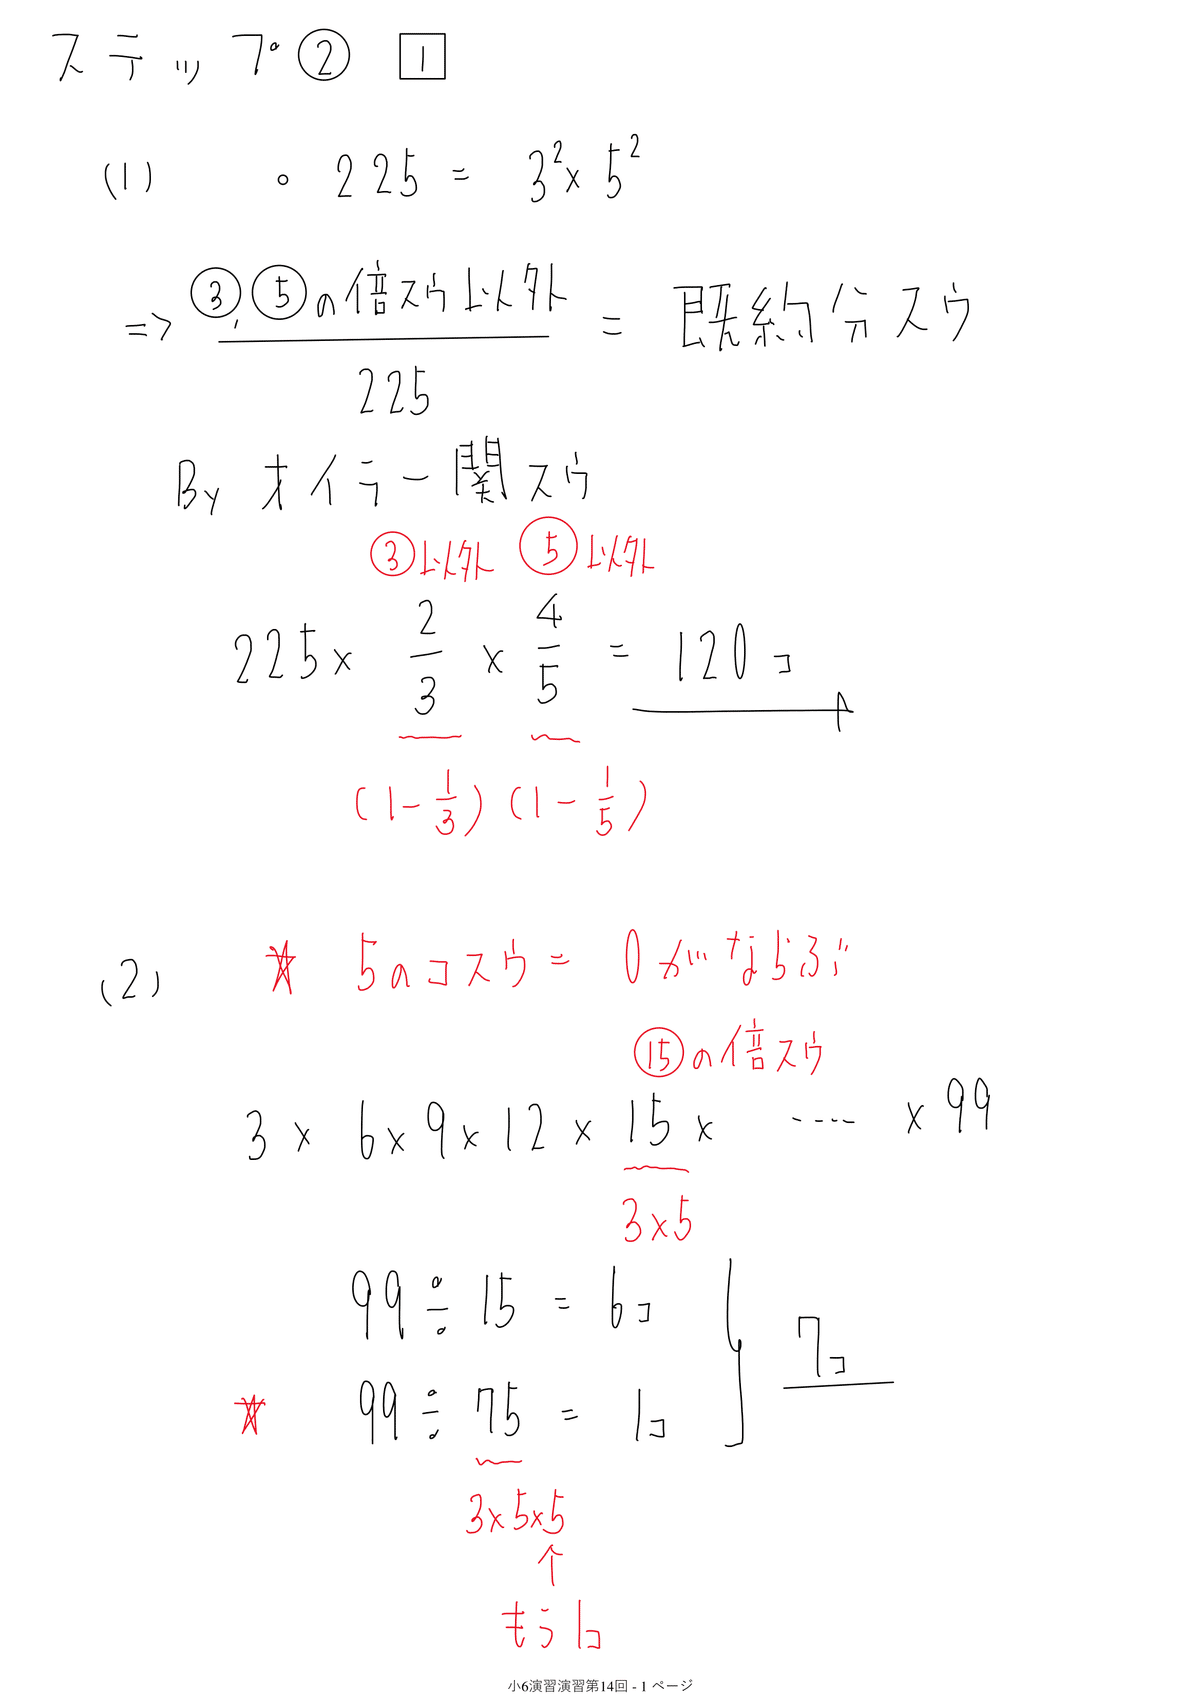 ステップ② 1
(1) 。 225 = 3²× 5²
=> ③, ⑤の倍スウ以外 / 225 = 既約分スウ
By オイラー関スウ
③以外 ⑤以外
225× 2/3 × 4/5 = 120コ
(1-1/3) (1-1/5)
(2) ☆ 5のコスウ = 0がならぶ
⑮の倍スウ
3 × 6×9×12 × 15 × ‥‥ ×99
3×5
99÷15 = 6コ
7コ
☆ 99÷75 = 1コ
3×5×5
↑
もう1コ
小6演習演習第14回 - 1 ページ